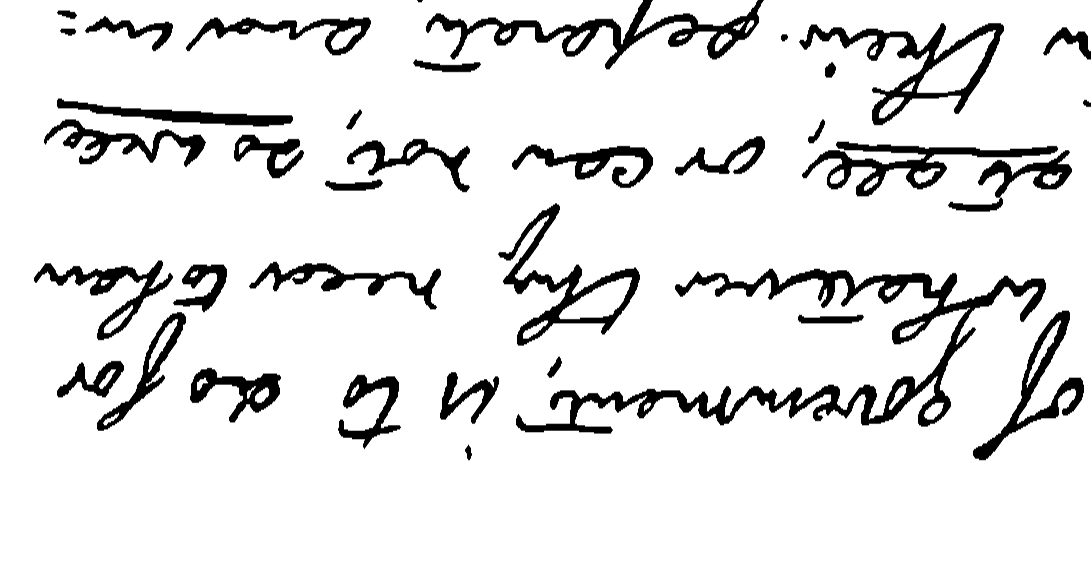 of government, is to do for
whatever they need to have
at all, or can not, so well
in their separate and in=